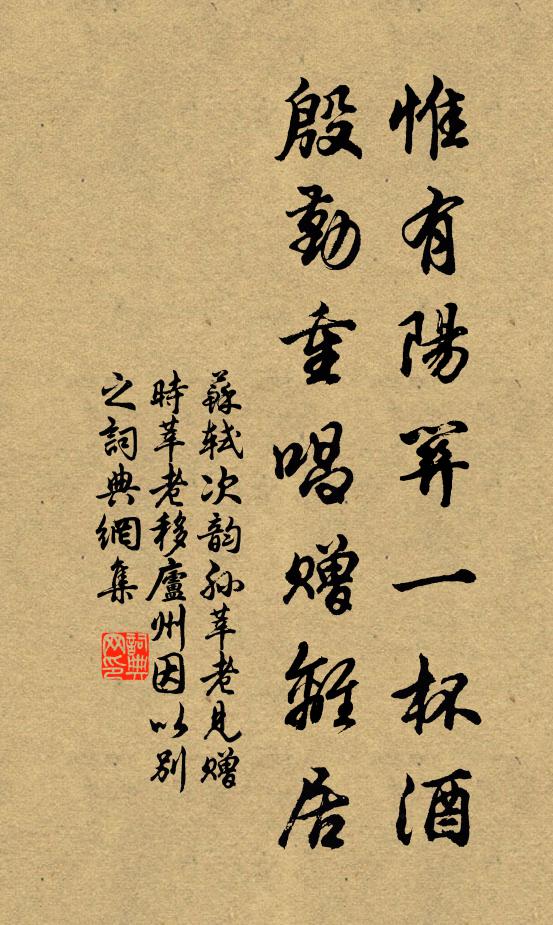 惟有陽關一杯酒
殷勤重唱贈離居
蘇軾次韵孫莘老見贈
時莘老移廬州因以別
之詞典網集
詞典网印